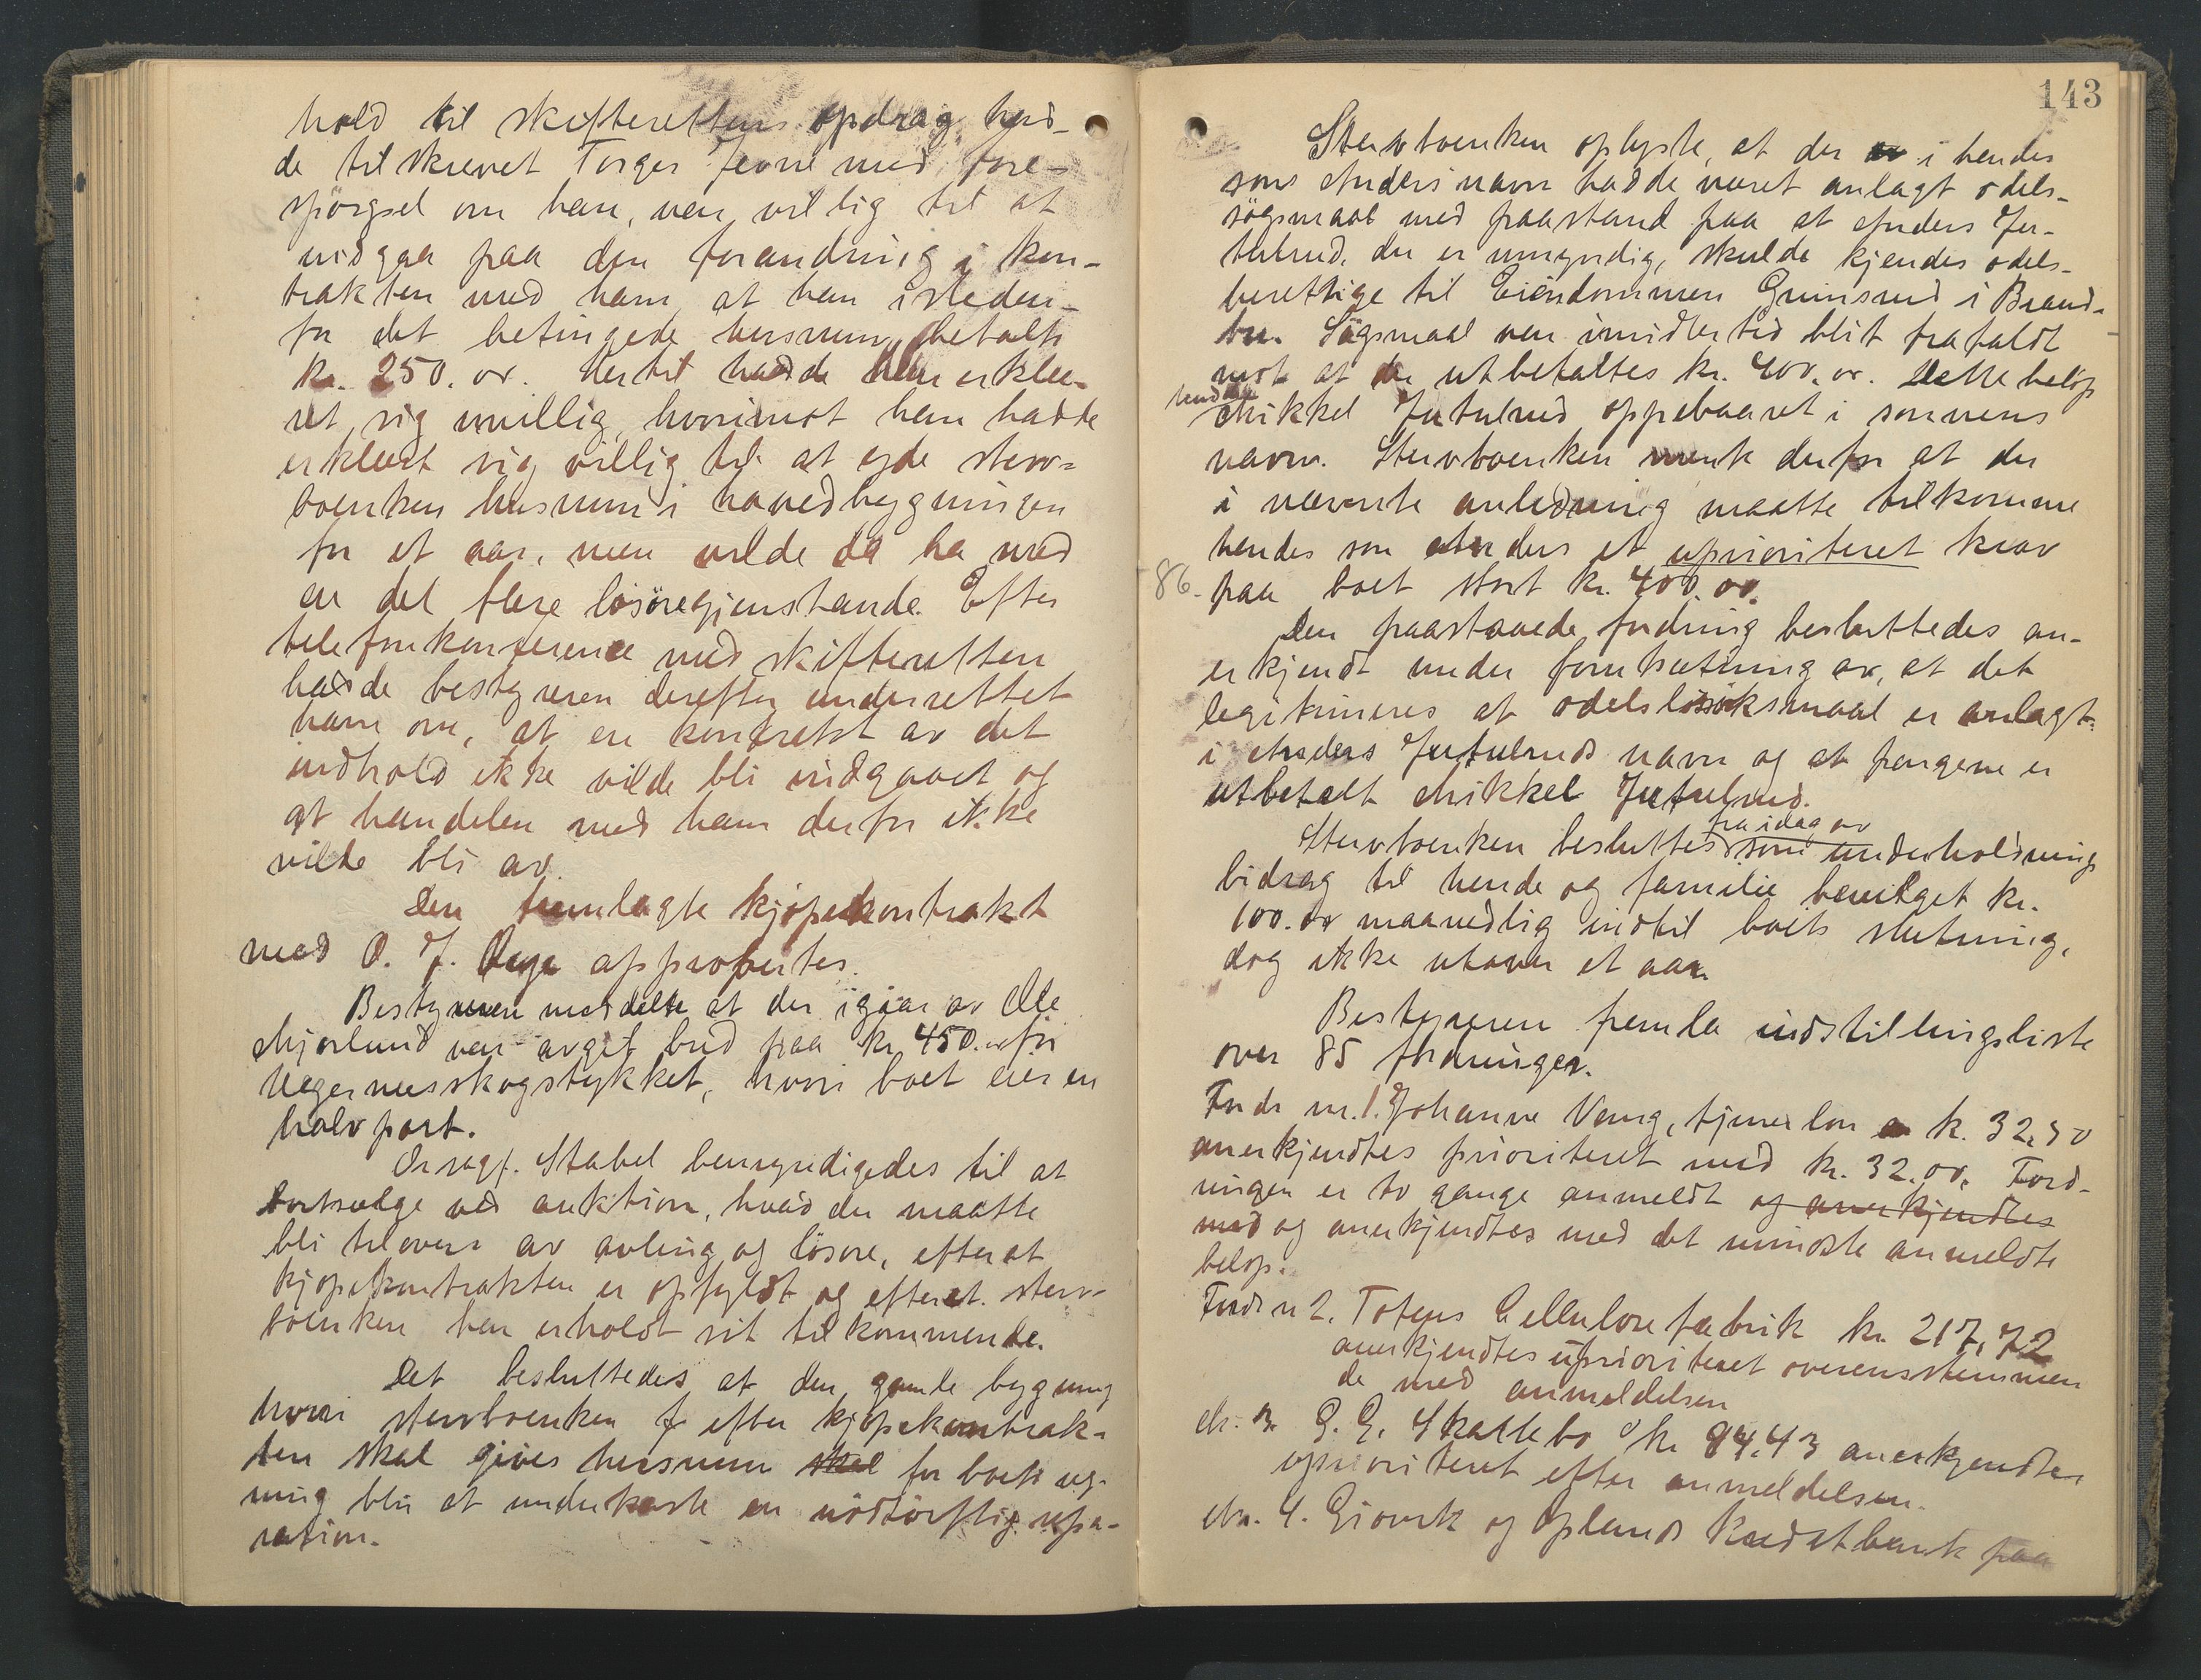 hold til skifterettens opdrag had-
de tilskrevet Torger Jevne med fore-
spörgsel om han var villig til at
indgaa paa den forandring i kon-
trakten med ham at han isteden-
for det betingede husrum betalte
kr. 250.00. Hertil hadde han erklæ-
ret sig uvillig, hvorimot han hadde
erklært sig villig til at yde sterv-
boenken husrum i hovedbygningen
for et aar, men vilde da ha med
en del flere lösöregjenstande. Efter
telefonkonference med skifteretten
hadde bestyreren derefter underrettet
ham om, at en kontrakt av det
indhold ikke vilde bli indgaaet og
at handelen med ham derfor ikke
vilde bli av.
Den fremlagte kjöpekontrakt
med O. J. approbertes.
Bestyreren meddelte at der igaar av Ole
Mjörlund var avgit bud paa kr 450.00 for
skogstykket, hvori boet eier en
halvpart.
Orsagf. Stabel bemyndigedes til at
bortsælge ved auktion, hvad der maatte
bli tilovers av avling og lösöre, efterat
kjöpekontrakten er opfyldt og efterat sterv-
boenken har erholdt sit tilkommende.
Det besluttedes at den gamle bygning
hvori stervboenken efter kjöpekontrak-
ten skal gives husrum skal for boets reg-
ning bli at underkaste en nödtörftig repa-
ration.
143
Stervboenken oplyste, at der av i hendes
söns Anders navn hadde været anlagt odels-
sögsmaal med paastand paa at Anders Ju-
tulrud, der er umyndig, skulde kjendes odels-
berettige til Eiendommen Grinsrud i Brand-
bu. Sögsmaal var imidlertid blit frafaldt
mot at der utbetaltes kr. 400.00. Dette belöp
hadde
Mikkel Jutulrud oppebaaret i sönnens
navn. Stervboenken mente derfor at der
i nævnte anledning maatte tilkomme
hendes sön Anders et uprioritert krav
86. paa boet stort kr. 400.00.
Den paastaaede fordring besluttedes an-
erkjendt under forutsætning av, at det
legitimeres at odelslösöksmaal er anlagt
i Anders Jutulruds navn og at pengene er
utbetalt Mikkel Jutulrud.
fra idag av
Stervboenken besluttedes som underholdnings
bidrag til hende og familie bevilget kr.
100.00 maanedlig indtil boets slutning,
dog ikke utover et aar.
Bestyreren fremla indstillingsliste
over 85 fordringer.
Fordr nr. 1. Johanne Vang, tjenerlön kr. 32,50
anerkjendtes prioriteret med kr. 32.00. Ford-
ringen er to gange anmeldt og anerkjendtes
med og anerkjendtes med det mindste anmeldte
belöp.
Fordr n 2. Totens Cellulosefabrik kr. 217,72
anerkjendtes uprioriteret overensstemmen
de med anmeldelsen
Nr. 3. G. G. Skattebo kr 84.43 anerkjendtes
uprioriteret efter anmeldelsen.
Nr. 4. Gjövik og Oplands Kreditbank paa